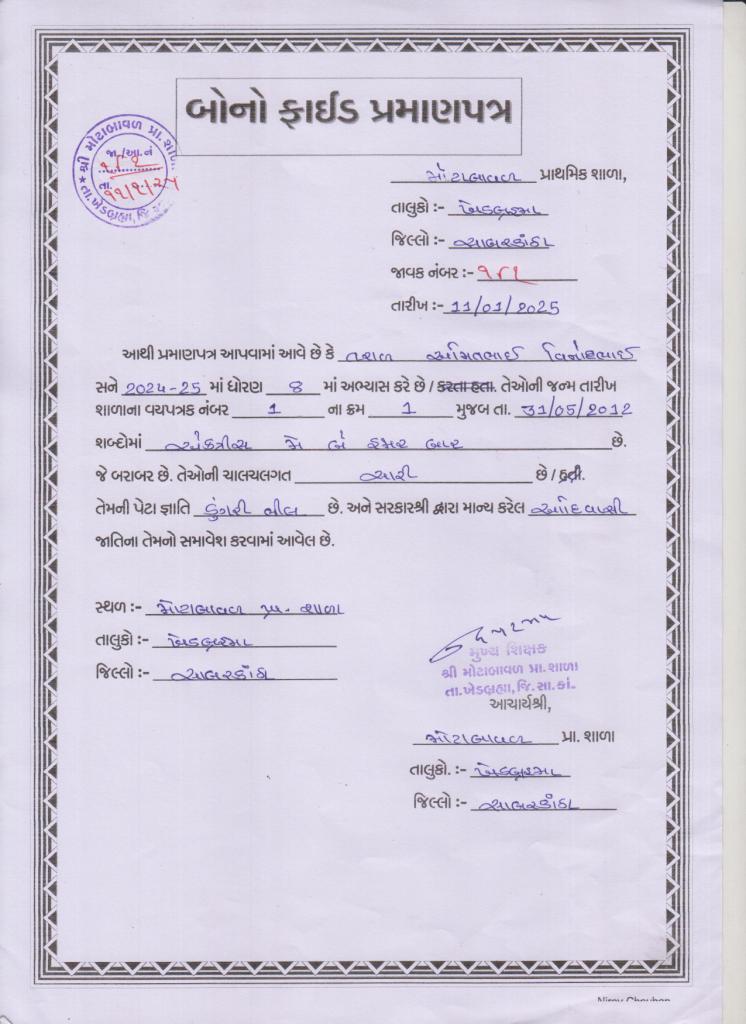 બોનો ફાઈડ પ્રમાણપત્ર
શ્રી મોટાબાવળ પ્રા. શાળા
જા./આ.નં ૧૮૧
તા. ૧૧/૧/૨૫
તા.ખેડબ્રહ્મા, જિ.
મોટાબાવળ પ્રાથમિક શાળા,
તાલુકો :- ખેડબ્રહ્મા
જિલ્લો :- સાબરકાંઠા
જાવક નંબર :- ૧૮૧
તારીખ :- 11/01/2025
આથી પ્રમાણપત્ર આપવામાં આવે છે કે અમિતભાઈ વિનોદભાઈ
સને 2024-25 માં ધોરણ 8 માં અભ્યાસ કરે છે / કરતા હતા. તેઓની જન્મ તારીખ
શાળાના વયપત્રક નંબર 1 ના ક્રમ 1 મુજબ તા. 31/05/2012
શબ્દોમાં એકત્રીસ મે બે હજાર બાર છે.
જે બરાબર છે. તેઓની ચાલચલગત સારી છે / હતી.
તેમની પેટા જ્ઞાતિ ડુંગરી ભીલ છે. અને સરકારશ્રી દ્વારા માન્ય કરેલ આદિવાસી
જાતિના તેમનો સમાવેશ કરવામાં આવેલ છે.
સ્થળ :- મોટાબાવળ પ્રા. શાળા
તાલુકો :- ખેડબ્રહ્મા
જિલ્લો :- સાબરકાંઠા
મુખ્ય શિક્ષક
શ્રી મોટાબાવળ પ્રા.શાળા
તા.ખેડબ્રહ્મા, જિ.સા.કાં.
આચાર્યશ્રી,
મોટાબાવળ પ્રા. શાળા
તાલુકો. :- ખેડબ્રહ્મા
જિલ્લો :- સાબરકાંઠા